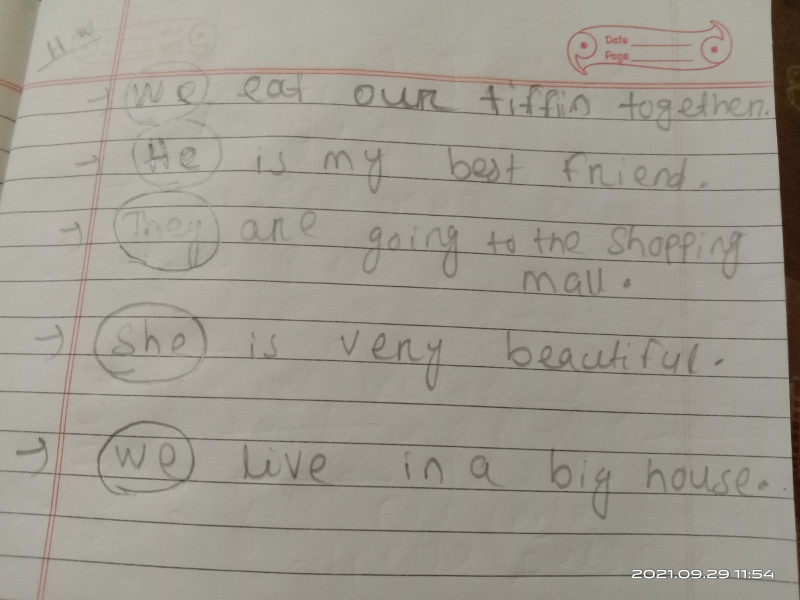 H.W
Date
Page
→ We eat our tiffin together.
→ He is my best friend.
→ They are going to the shopping
mall.
→ She is very beautiful.
→ we live in a big house.
2021.09.29 11:54